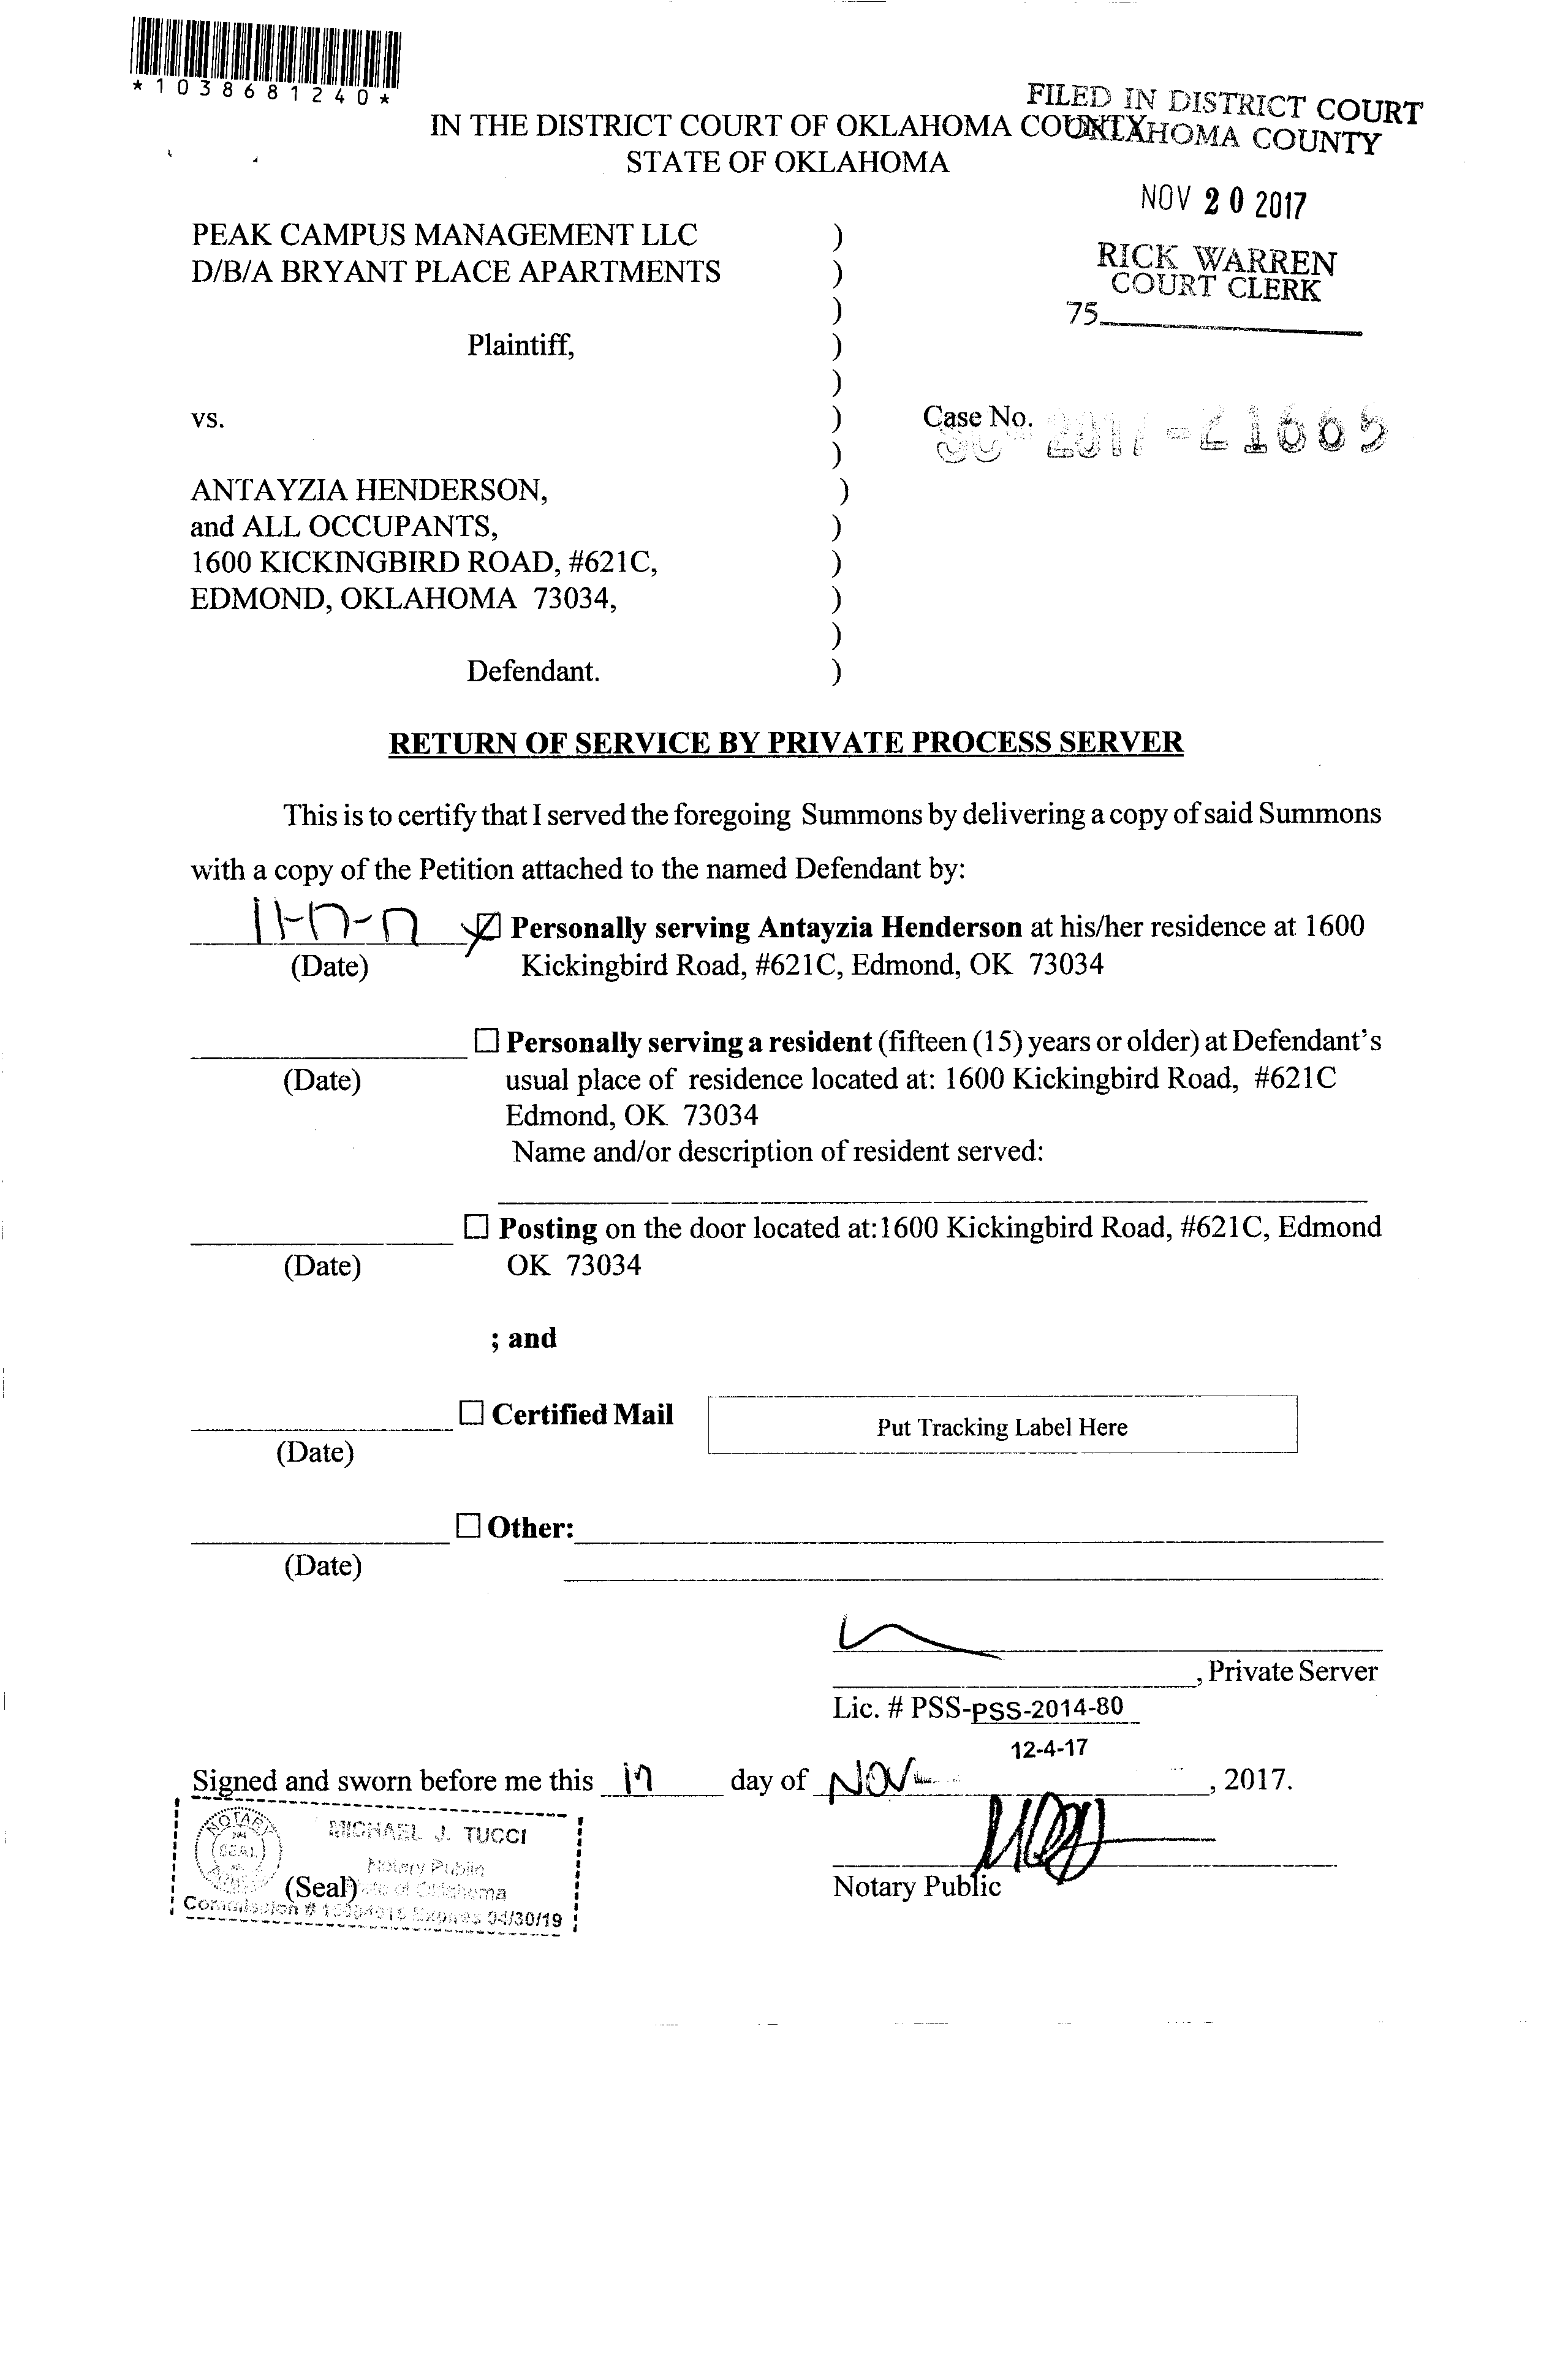 *1038681240*
FILED IN DISTRICT COURT
IN THE DISTRICT COURT OF OKLAHOMA COUNTY
HOMA COUNTY
STATE OF OKLAHOMA
NOV 20 2017
PEAK CAMPUS MANAGEMENT LLC )
D/B/A BRYANT PLACE APARTMENTS )
RICK WARREN
COURT CLERK
)
75
Plaintiff, )
)
vs. )
Case No.
2017-21665
)
ANTAYZIA HENDERSON, )
and ALL OCCUPANTS, )
1600 KICKINGBIRD ROAD, #621C, )
EDMOND, OKLAHOMA 73034, )
)
Defendant. )
RETURN OF SERVICE BY PRIVATE PROCESS SERVER
This is to certify that I served the foregoing Summons by delivering a copy of said Summons
with a copy of the Petition attached to the named Defendant by:
11-17-17 Personally serving Antayzia Henderson at his/her residence at 1600
(Date) Kickingbird Road, #621C, Edmond, OK 73034
☐ Personally serving a resident (fifteen (15) years or older) at Defendant's
(Date) usual place of residence located at: 1600 Kickingbird Road, #621C
Edmond, OK 73034
Name and/or description of resident served:
☐ Posting on the door located at:1600 Kickingbird Road, #621C, Edmond
(Date) OK 73034
; and
☐ Certified Mail Put Tracking Label Here
(Date)
☐ Other:
(Date)
, Private Server
Lic. # PSS-PSS-2014-80
12-4-17
Signed and sworn before me this 17 day of NOV , 2017.
NOTARY
SEAL
MICHAEL J. TUCCI
Notary Public
(Seal) State of Oklahoma
Notary Public
Commission # Expires 04/30/19